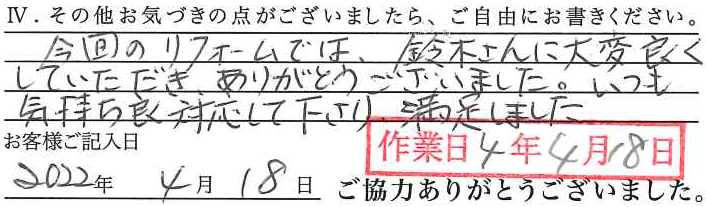 Ⅳ．その他お気づきの点がございましたら、ご自由にお書きください。
今回のリフォームでは、鈴木さんに大変良く
していただき、ありがとうございました。いつも
気持ち良く対応して下さり、満足しました
お客様ご記入日
作業日4年4月18日
2022年 4月 18日 ご協力ありがとうございました。